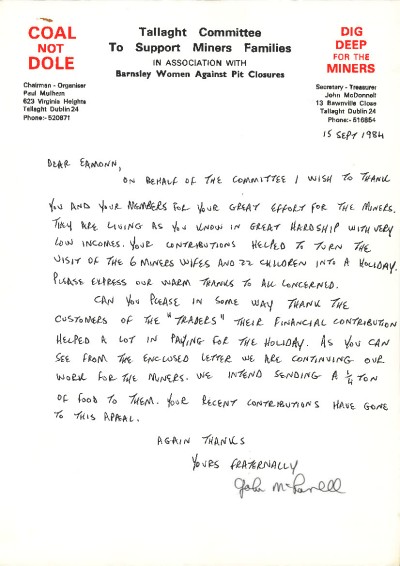 COAL
NOT
DOLE
Tallaght Committee
To Support Miners Families
IN ASSOCIATION WITH
Barnsley Women Against Pit Closures
DIG
DEEP
FOR THE
MINERS
Chairman - Organiser
Paul Mulhern
623 Virginia Heights
Tallaght Dublin 24
Phone:- 520871
Secretary - Treasurer
John McDonnell
13 Bawnville Close
Tallaght Dublin 24
Phone:- 516864
15 SEPT 1984
DEAR EAMONN,
ON BEHALF OF THE COMMITTEE I WISH TO THANK
YOU AND YOUR MEMBERS FOR YOUR GREAT EFFORT FOR THE MINERS.
THEY ARE LIVING AS YOU KNOW IN GREAT HARDSHIP WITH VERY
LOW INCOMES. YOUR CONTRIBUTIONS HELPED TO TURN THE
VISIT OF THE 6 MINERS WIFES AND 22 CHILDREN INTO A HOLIDAY.
PLEASE EXPRESS OUR WARM THANKS TO ALL CONCERNED.
CAN YOU PLEASE IN SOME WAY THANK THE
CUSTOMERS OF THE "TRADERS" THEIR FINANCIAL CONTRIBUTION
HELPED A LOT IN PAYING FOR THE HOLIDAY. AS YOU CAN
SEE FROM THE ENCLOSED LETTER WE ARE CONTINUING OUR
WORK FOR THE MINERS. WE INTEND SENDING A 1/4 TON
OF FOOD TO THEM. YOUR RECENT CONTRIBUTIONS HAVE GONE
TO THIS APPEAL.
AGAIN THANKS
YOURS FRATERNALLY
John McDonnell